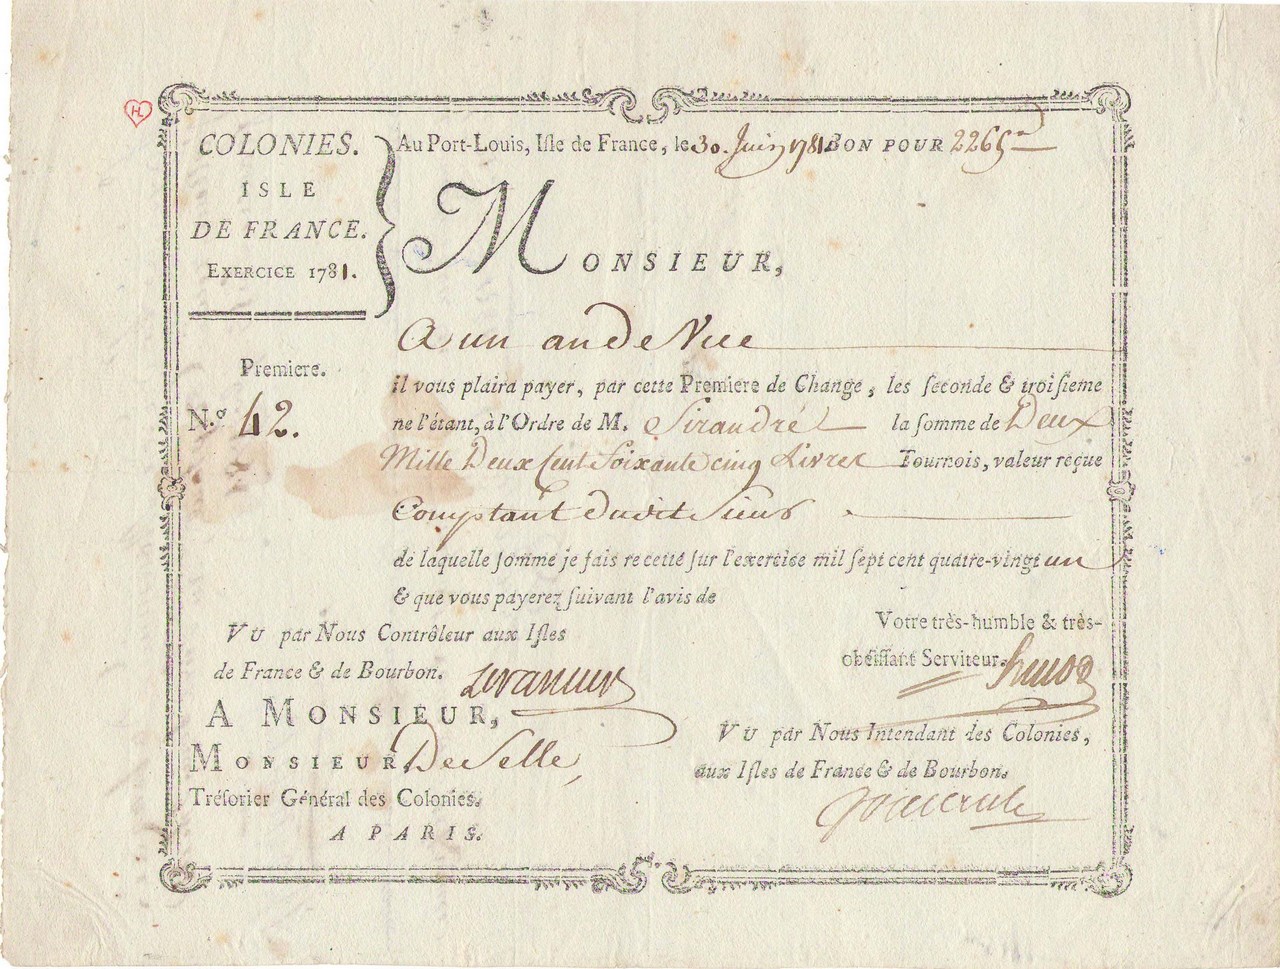 HL
COLONIES.
ISLE
DE FRANCE.
EXERCICE 1781.
Au Port-Louis, Isle de France, le 30. Juin 1781 BON POUR 2265
MONSIEUR,
A un an de Vue
Premiere.
N.º 42.
il vous plaira payer, par cette Premiere de Change, les seconde & troisieme
ne l'étant, à l'Ordre de M. Sirandré la somme de Deux
Mille Deux Cent Soixante cinq Livres Tournois, valeur reçue
Comptant dudit Sieur
de laquelle somme je fais recette sur l'exercice mil sept cent quatre-vingt un
& que vous payerez suivant l'avis de
Votre très-humble & très-
obéissant Serviteur.
VU par Nous Contrôleur aux Isles
de France & de Bourbon.
A MONSIEUR,
MONSIEUR De Selle,
Trésorier Général des Colonies.
A PARIS.
VU par Nous Intendant des Colonies,
aux Isles de France & de Bourbon.